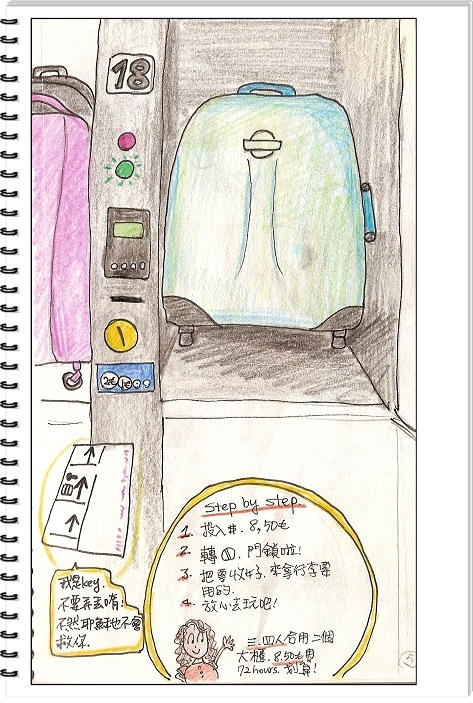 18
2€ 1€
Step by step
1. 投入#. 8,50€
2. 轉①. 門鎖啦!
3. 把要收好. 來拿行李要
用的.
4. 放心去玩吧!
三.四人合用一個
大櫃. 8.50€更
72hours. 划算!
我是key.
不要弄丟唷!
不然耶穌也不會
救你.
5